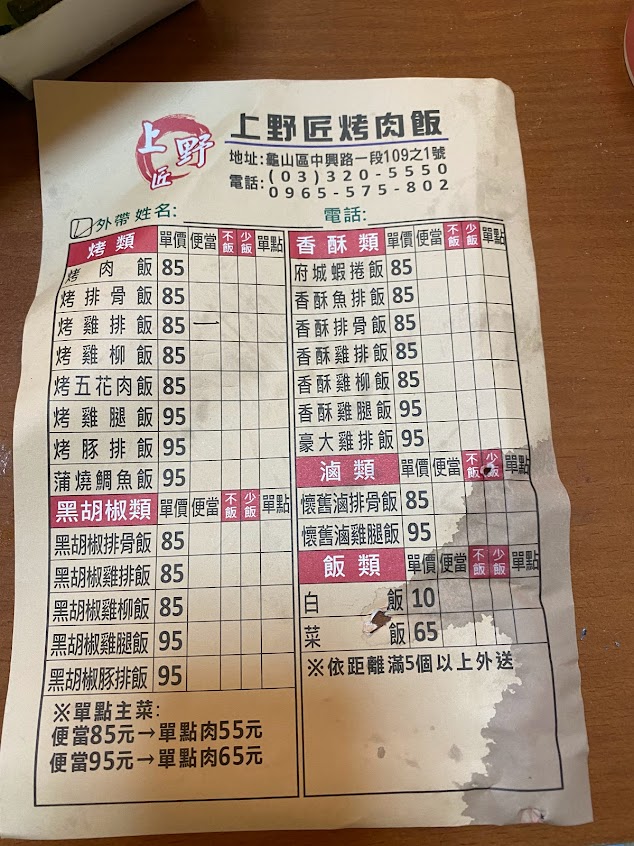 上野匠
上野匠烤肉飯
地址:龜山區中興路一段109之1號
電話:(03)320-5550
0965-575-802
外帶 姓名: 電話:
烤類 單價 便當 不飯 少飯 單點
烤肉飯 85
烤排骨飯 85
烤雞排飯 85 一
烤雞柳飯 85
烤五花肉飯 85
烤雞腿飯 95
烤豚排飯 95
蒲燒鯛魚飯 95
黑胡椒類 單價 便當 不飯 少飯 單點
黑胡椒排骨飯 85
黑胡椒雞排飯 85
黑胡椒雞柳飯 85
黑胡椒雞腿飯 95
黑胡椒豚排飯 95
※單點主菜:
便當85元→單點肉55元
便當95元→單點肉65元
香酥類 單價 便當 不飯 少飯 單點
府城蝦捲飯 85
香酥魚排飯 85
香酥排骨飯 85
香酥雞排飯 85
香酥雞柳飯 85
香酥雞腿飯 95
豪大雞排飯 95
滷類 單價 便當 不飯 少飯 單點
懷舊滷排骨飯 85
懷舊滷雞腿飯 95
飯類 單價 便當 不飯 少飯 單點
白飯 10
菜飯 65
※依距離滿5個以上外送